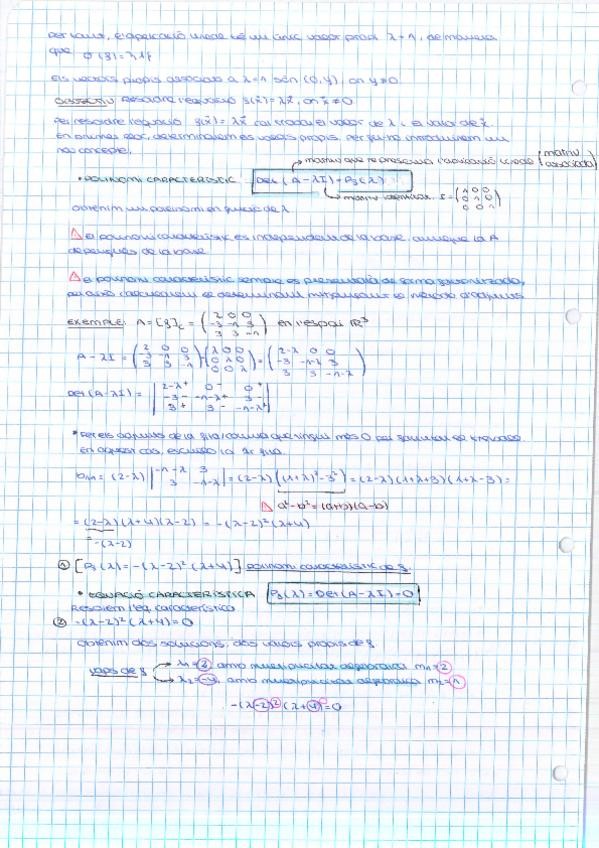 Per tant, l'aplicació lineal té un únic valor propi λ = 1, de manera
que σ(f) = {1}
Els vectors propis associats a λ=1 són (0,y), on y≠0.
OBJECTIU: Resoldre l'equació f(x⃗) = λx⃗, on x⃗ ≠ 0
Per resoldre l'equació f(x⃗) = λx⃗ cal trobar el valor de λ i el valor de x⃗.
En primer lloc, determinarem els valors propis. Per fer-ho introduirem un
nou concepte.
matriu que representa l'aplicació lineal (matriu associada)
• POLINOMI CARACTERÍSTIC: Det (A - λI) = Pf(λ)
matriu identitat. I = (1 0 0 / 0 1 0 / 0 0 1)
Obtenim un polinomi en funció de λ
⚠ el polinomi característic és independent de la base, aunque la A
depengui de la base
⚠ el polinomi característic sempre es presentarà de forma factoritzada,
per això calcularem el determinant mitjançant el mètode d'adjunts
EXEMPLE: A = [f]c = (2 0 0 / -3 -1 3 / 3 3 -1) en l'espai ℝ³
A - λI = (2 0 0 / -3 -1 3 / 3 3 -1) - (λ 0 0 / 0 λ 0 / 0 0 λ) = (2-λ 0 0 / -3 -1-λ 3 / 3 3 -1-λ)
Det (A - λI) = | 2-λ⁺ 0⁻ 0⁺ / -3⁻ -1-λ⁺ 3⁻ / 3⁺ 3⁻ -1-λ⁺ |
* Fer els adjunts de la fila/columna que tingui més 0 per
En aquest cas, escullo la 1r fila.
= (2-λ) | -1-λ 3 / 3 -1-λ | = (2-λ) ((1+λ)² - 3²) = (2-λ)(λ+1+3)(λ+1-3) =
⚠ a² - b² = (a+b)(a-b)
= (2-λ)(λ+4)(λ-2) = -(λ-2)²(λ+4)
= -(λ-2)
① [Pf(λ) = -(λ-2)²(λ+4)] polinomi característic de f.
• EQUACIÓ CARACTERÍSTICA Pf(λ) = Det(A-λI) = 0
Resolem l'eq. característica
② -(λ-2)²(λ+4) = 0
Obtenim dos solucions, dos valors propis de f
vaps de f
λ1 = 2, amb multiplicitat algebraica m1 = 2
λ2 = -4, amb multiplicitat algebraica m2 = 1
-(λ-2)²(λ+4) = 0